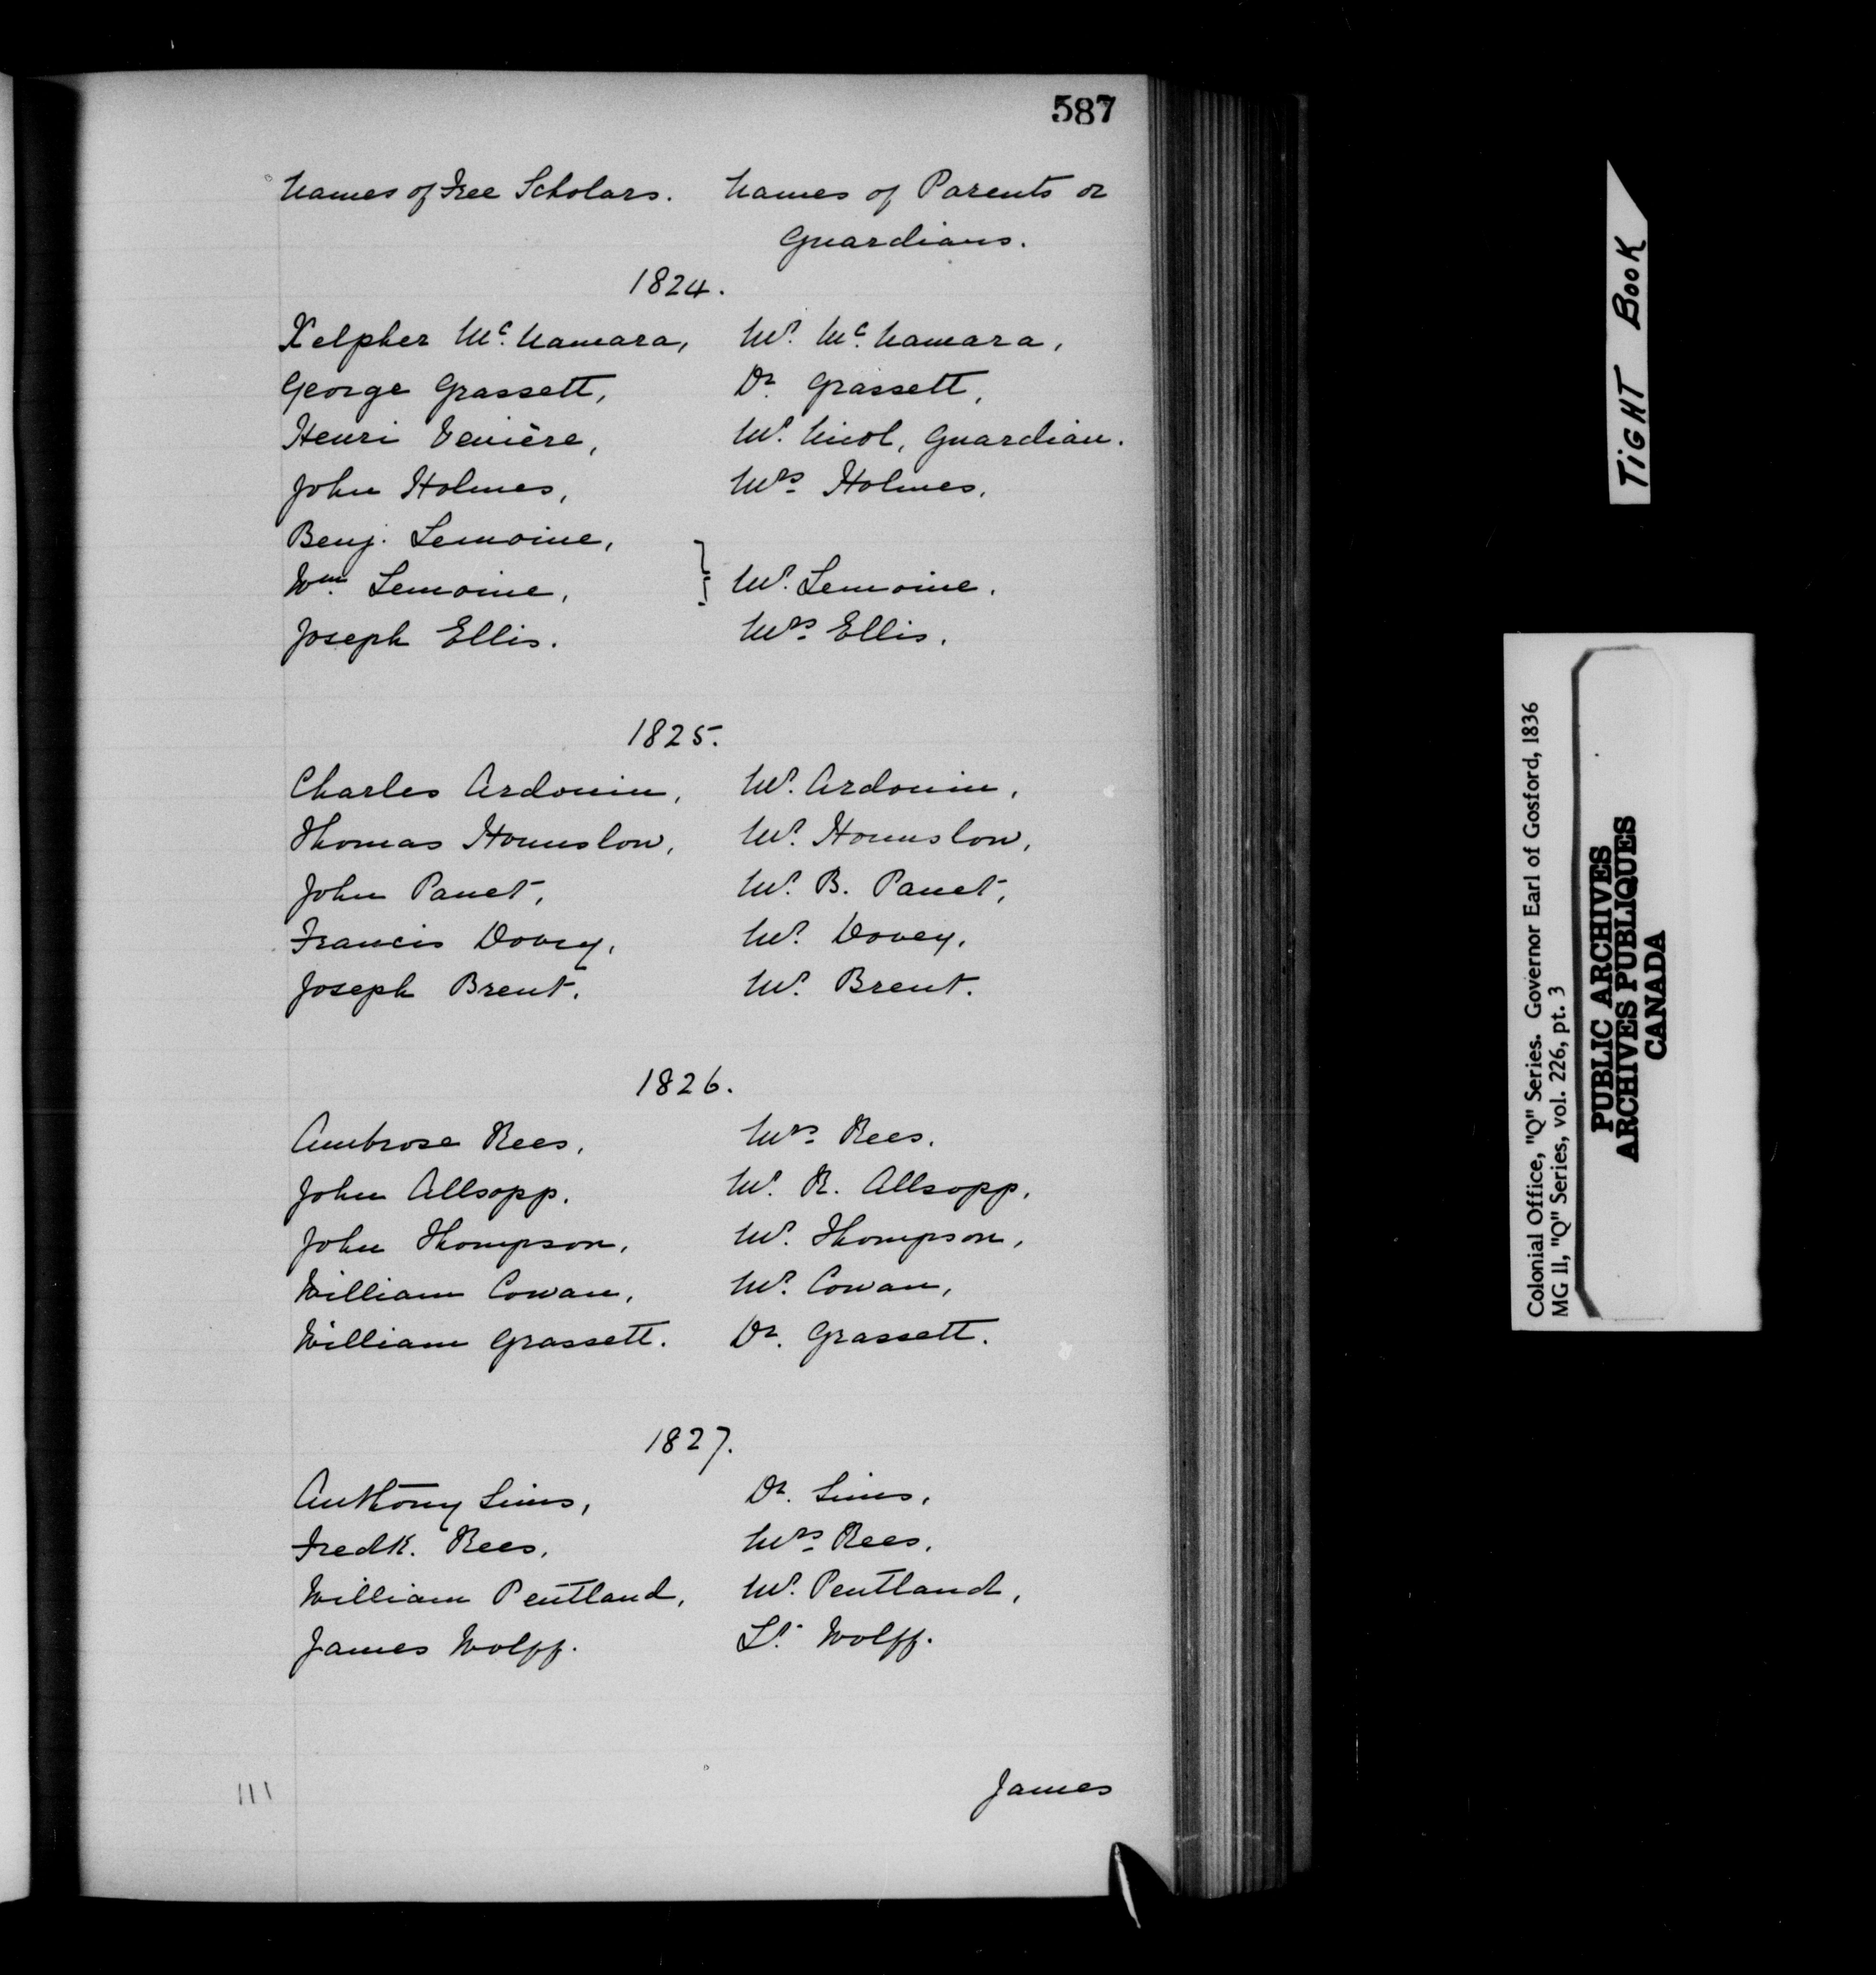 587
Names of Free Scholars. Names of Parents or
Guardians.
1824.
Kelpher McNamara, Mr. McNamara,
George Grassett, Dr. Grassett,
Henri Venière, Mr. Nicol, Guardian.
John Holmes, Mrs. Holmes.
Benj. Lemoine,
Wm. Lemoine, } Mr. Lemoine.
Joseph Ellis. Mrs. Ellis.
1825.
Charles Ardouin, Mr. Ardouin,
Thomas Hounslow, Mr. Hounslow,
John Panet, Mr. B. Panet,
Francis Dovey, Mr. Dovey,
Joseph Brent. Mr. Brent.
1826.
Ambrose Rees, Mrs. Rees.
John Allsopp. Mr. R. Allsopp,
John Thompson, Mr. Thompson,
William Cowan, Mr. Cowan,
William Grassett. Dr. Grassett.
1827.
Anthony Sims, Dr. Sims,
Fredk. Rees, Mrs. Rees.
William Pentland, Mr. Pentland,
James Wolff. Lt. Wolff.
James
111
TIGHT BOOK
Colonial Office, "Q" Series. Governor Earl of Gosford, 1836
MG 11, "Q" Series, vol. 226, pt. 3
PUBLIC ARCHIVES
ARCHIVES PUBLIQUES
CANADA